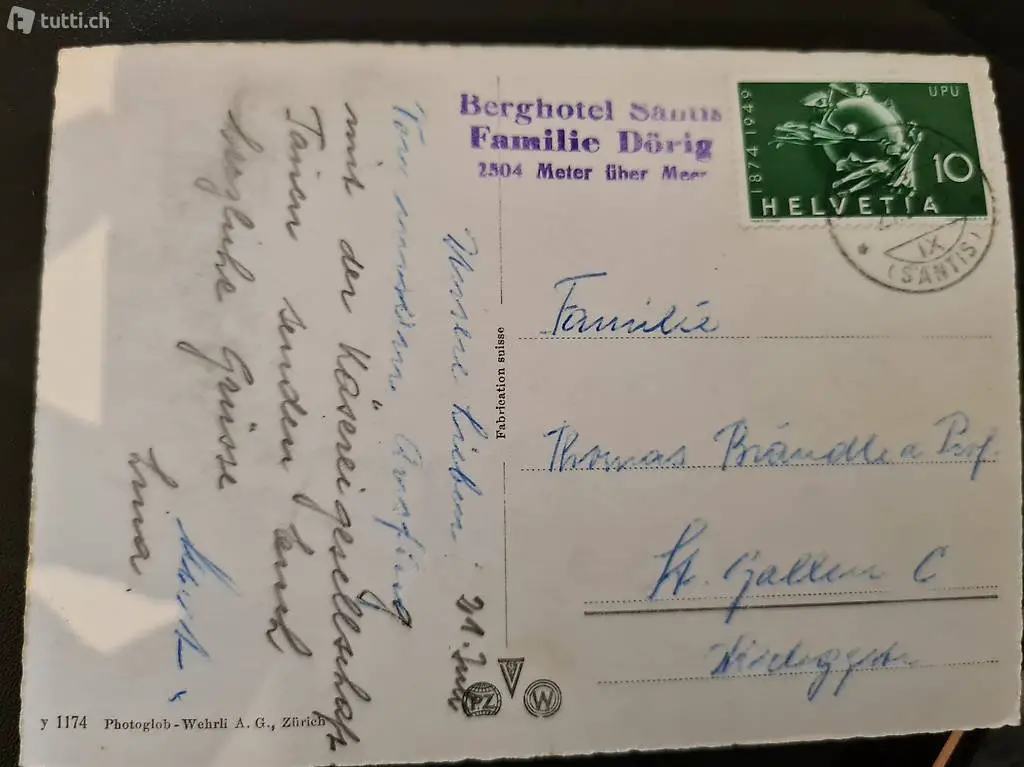 tutti.ch
Berghotel Säntis
Familie Dörig
2504 Meter über Meer
1874 1949
UPU
10
HELVETIA
IX
(SÄNTIS)
Familie
Thomas Brändle a Prof.
St. Gallen C
Unsere Lieben! 21. Juni
Von unserem Ausflug
mit der Käsereigesellschaft
Tanien senden Euch
herzliche Grüsse
Fabrication suisse
PZ
W
y 1174 Photoglob-Wehrli A. G., Zürich